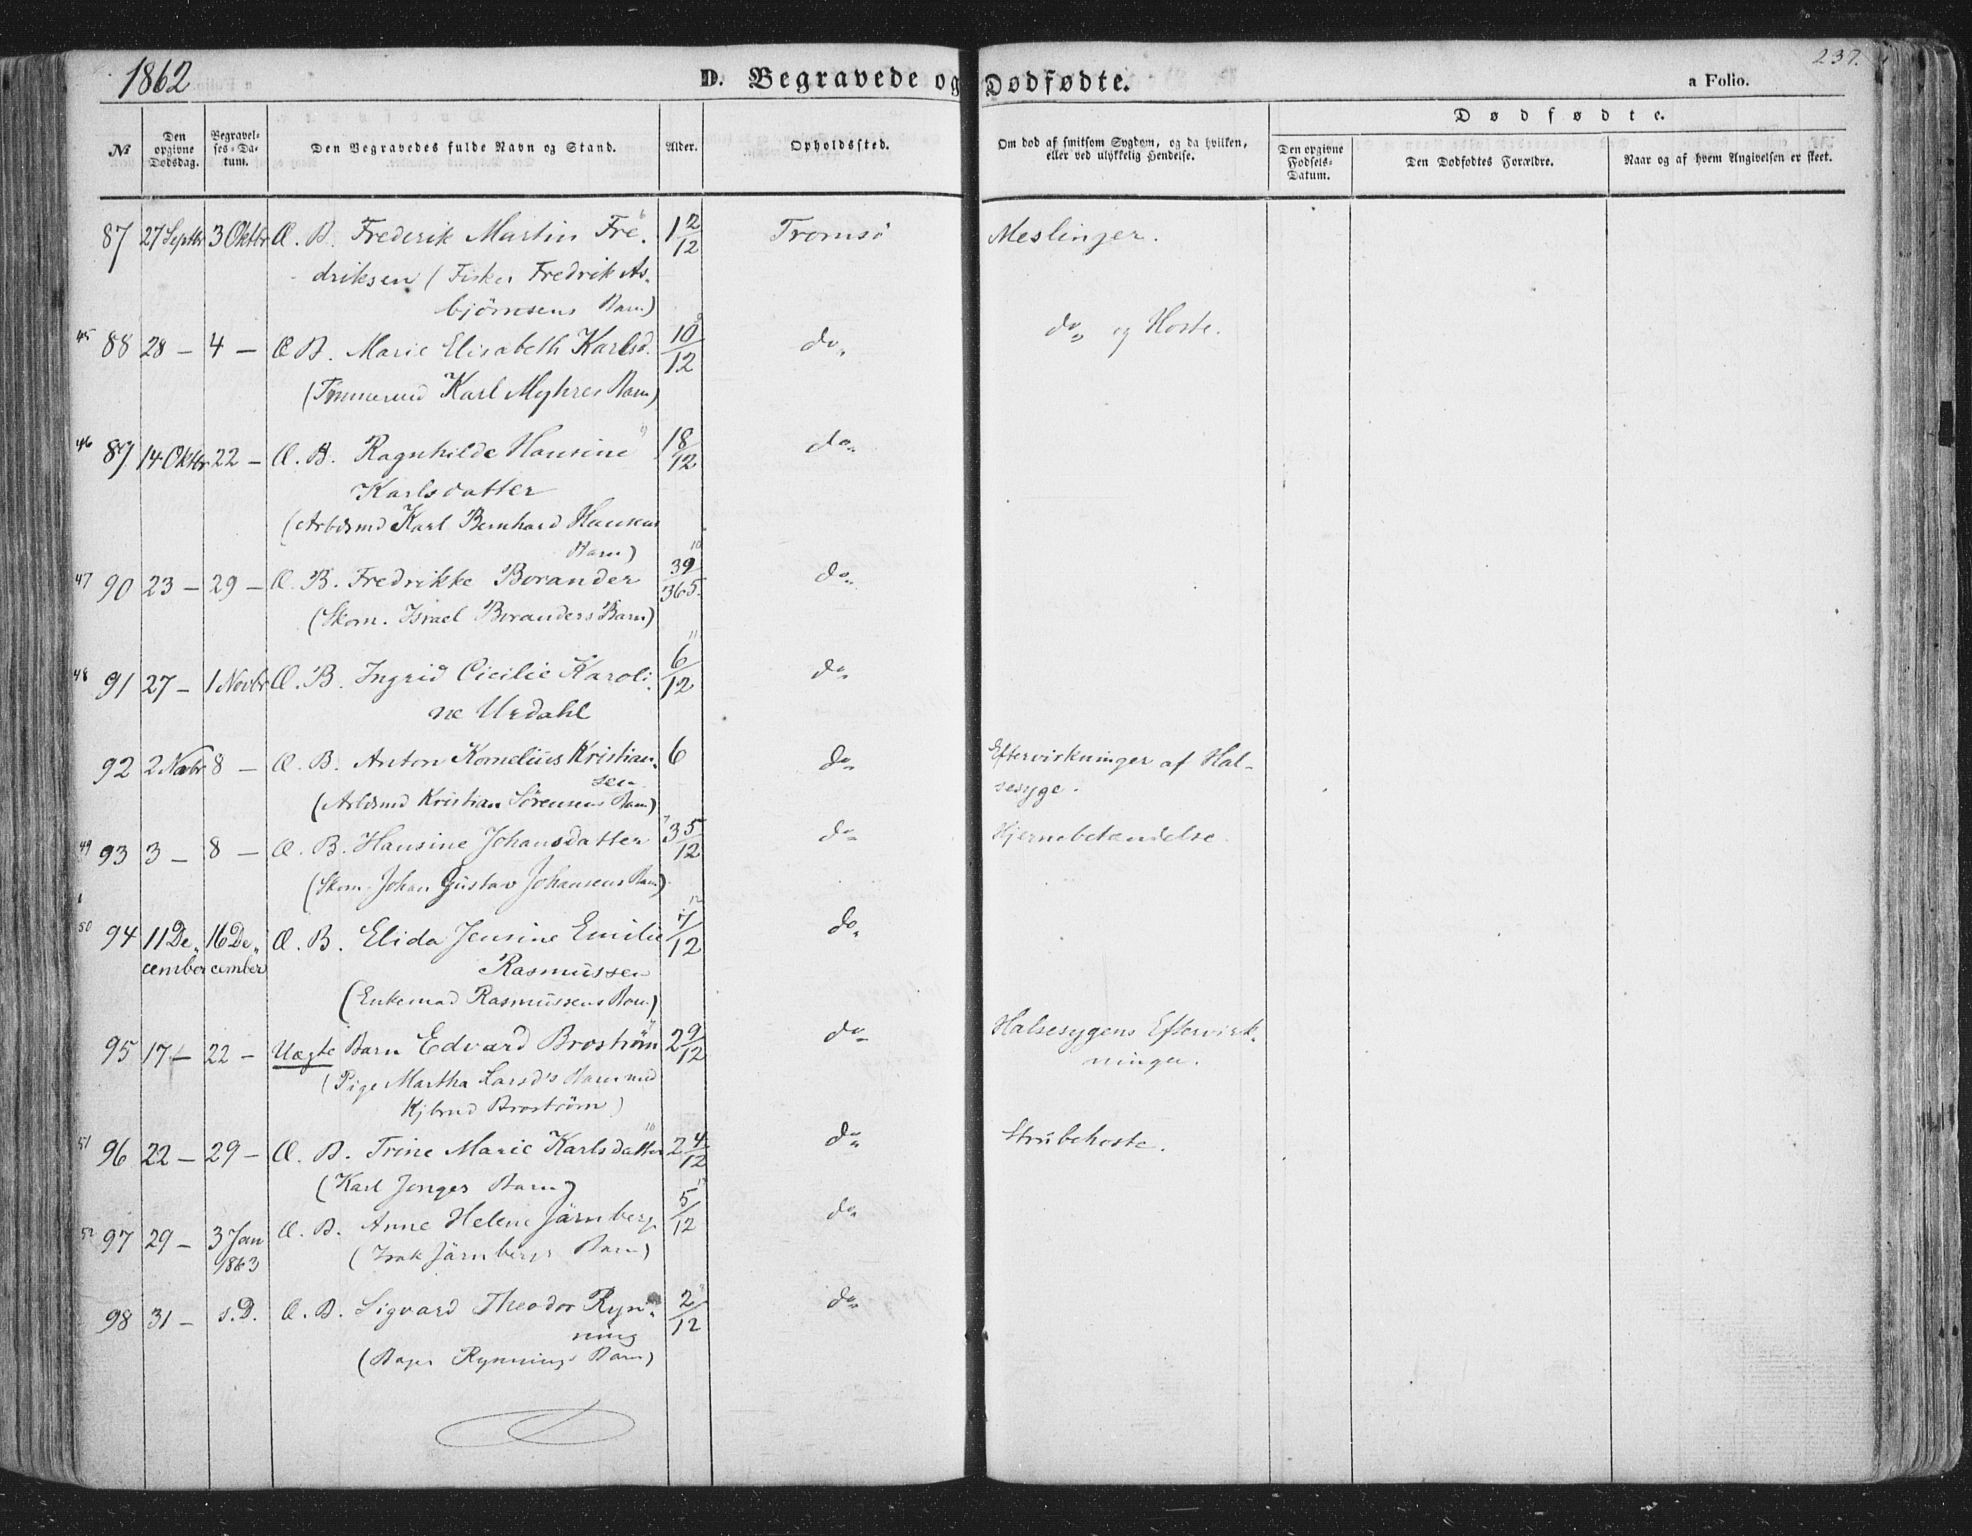 1862 D. Begravede og Dødfødte. a Folio. 237.
№ Den opgivne Dødsdag. Begravelses-Datum. Den Begravedes fulde Navn og Stand. Alder. Opholdssted. Om død af smitsom Sygdom, og da hvilken, eller ved ulykkelig Hendelse. Dødfødte.
Den opgivne Fødsels-Datum. Den Dødfødtes Forældre. Naar og af hvem Angivelsen er skeet.
87 27 Septbr 3 Oktbr Æ. B. Frederik Martin Fre- 1 2/12 Tromsø Meslinger.
driksen (Fisker Fredrik As-
bjørnsens Barn)
45 88 28 — 4 — Æ B. Marie Elisabeth Karlsd. 10/12 do„ do„ og Hoste.
(Tømmermd Karl Myhres Barn)
46 89 14 Oktbr 22 — Æ. B. Ragnhilde Hansine 18/12 do„
Karlsdatter
(Arbdsmd Karl Bernhard Hansens
Barn)
47 90 23 — 29 — Æ. B. Fredrikke Borander 39/365. do„
(Skom. Israel Boranders Barn)
48 91 27 — 1 Novbr Æ. B. Ingrid Cicilie Karoli- 6/12 do„
ne Urdahl
92 2 Novbr 8 — Æ. B. Anton Kornelius Kristian- 6 do„ Eftervirkninger af Hal-
sen sesyge.
(Arbdsmd Kristian Sörensens Barn)
49 93 3 — 8 — Æ. B. Hansine Johansdatter 3 5/12 do„ Hjernebetændelse.
(Skom. Johan Gustav Johansens Barn)
50 94 11 De- 16 De- Æ. B. Elida Jensine Emilie 7/12 do„
cember cember Rasmussen
(Enkemad Rasmussens Barn)
95 17 — 22 — Uægte Barn Edvard Broström 2 9/12 do„ Halsesygens Eftervirk-
(Pige Martha Larsd's Barn med ninger.
Kjbmd Broström)
51 96 22 — 29 — Æ. B. Trine Marie Karlsdatter 2 4/12 do„ Strubehoste.
(Karl Jenges Barn)
52 97 29 — 3 Jan Æ. B. Anne Helene Järnberg 5/12 do„
1863 (Isak Järnbergs Barn)
98 31 — s.D. Æ. B. Sigvard Theodor Ryn- 2/12 do„
ning
(Bager Rynnings Barn)